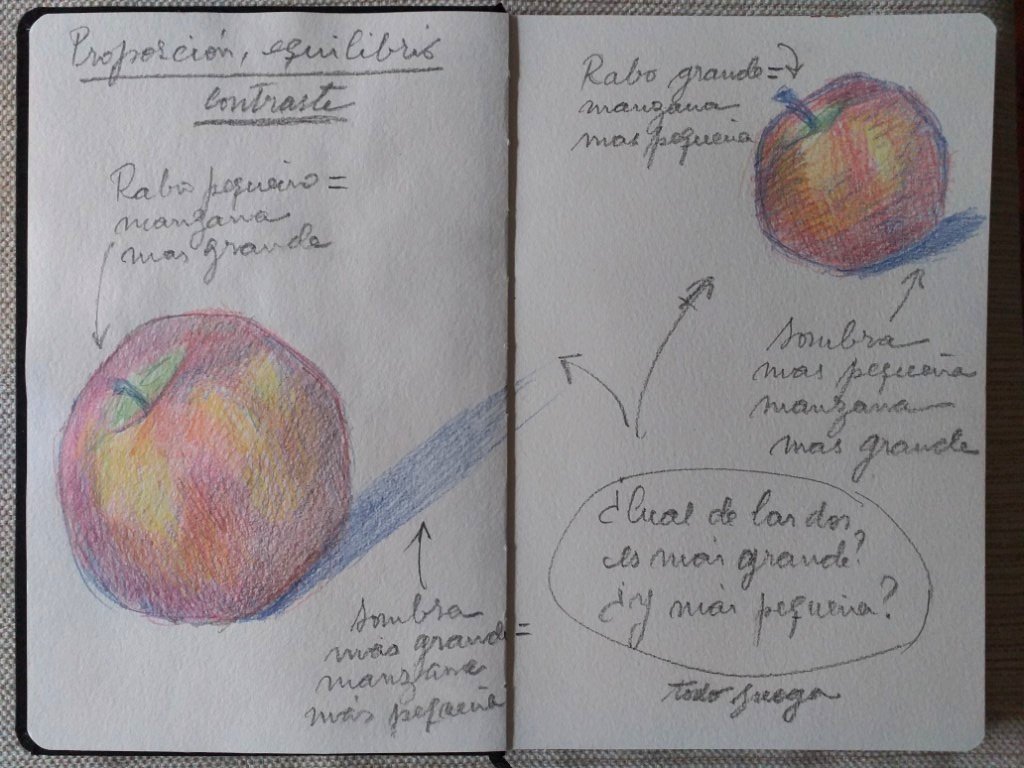 Proporción, equilibrio
contraste
Rabo pequeño =
manzana
mas grande
Sombra
más grande =
manzana
más pequeña
Rabo grande =
manzana
mas pequeña
Sombra
mas pequeña
manzana
mas grande
¿Cual de las dos
es más grande?
¿Y más pequeña?
todo juega